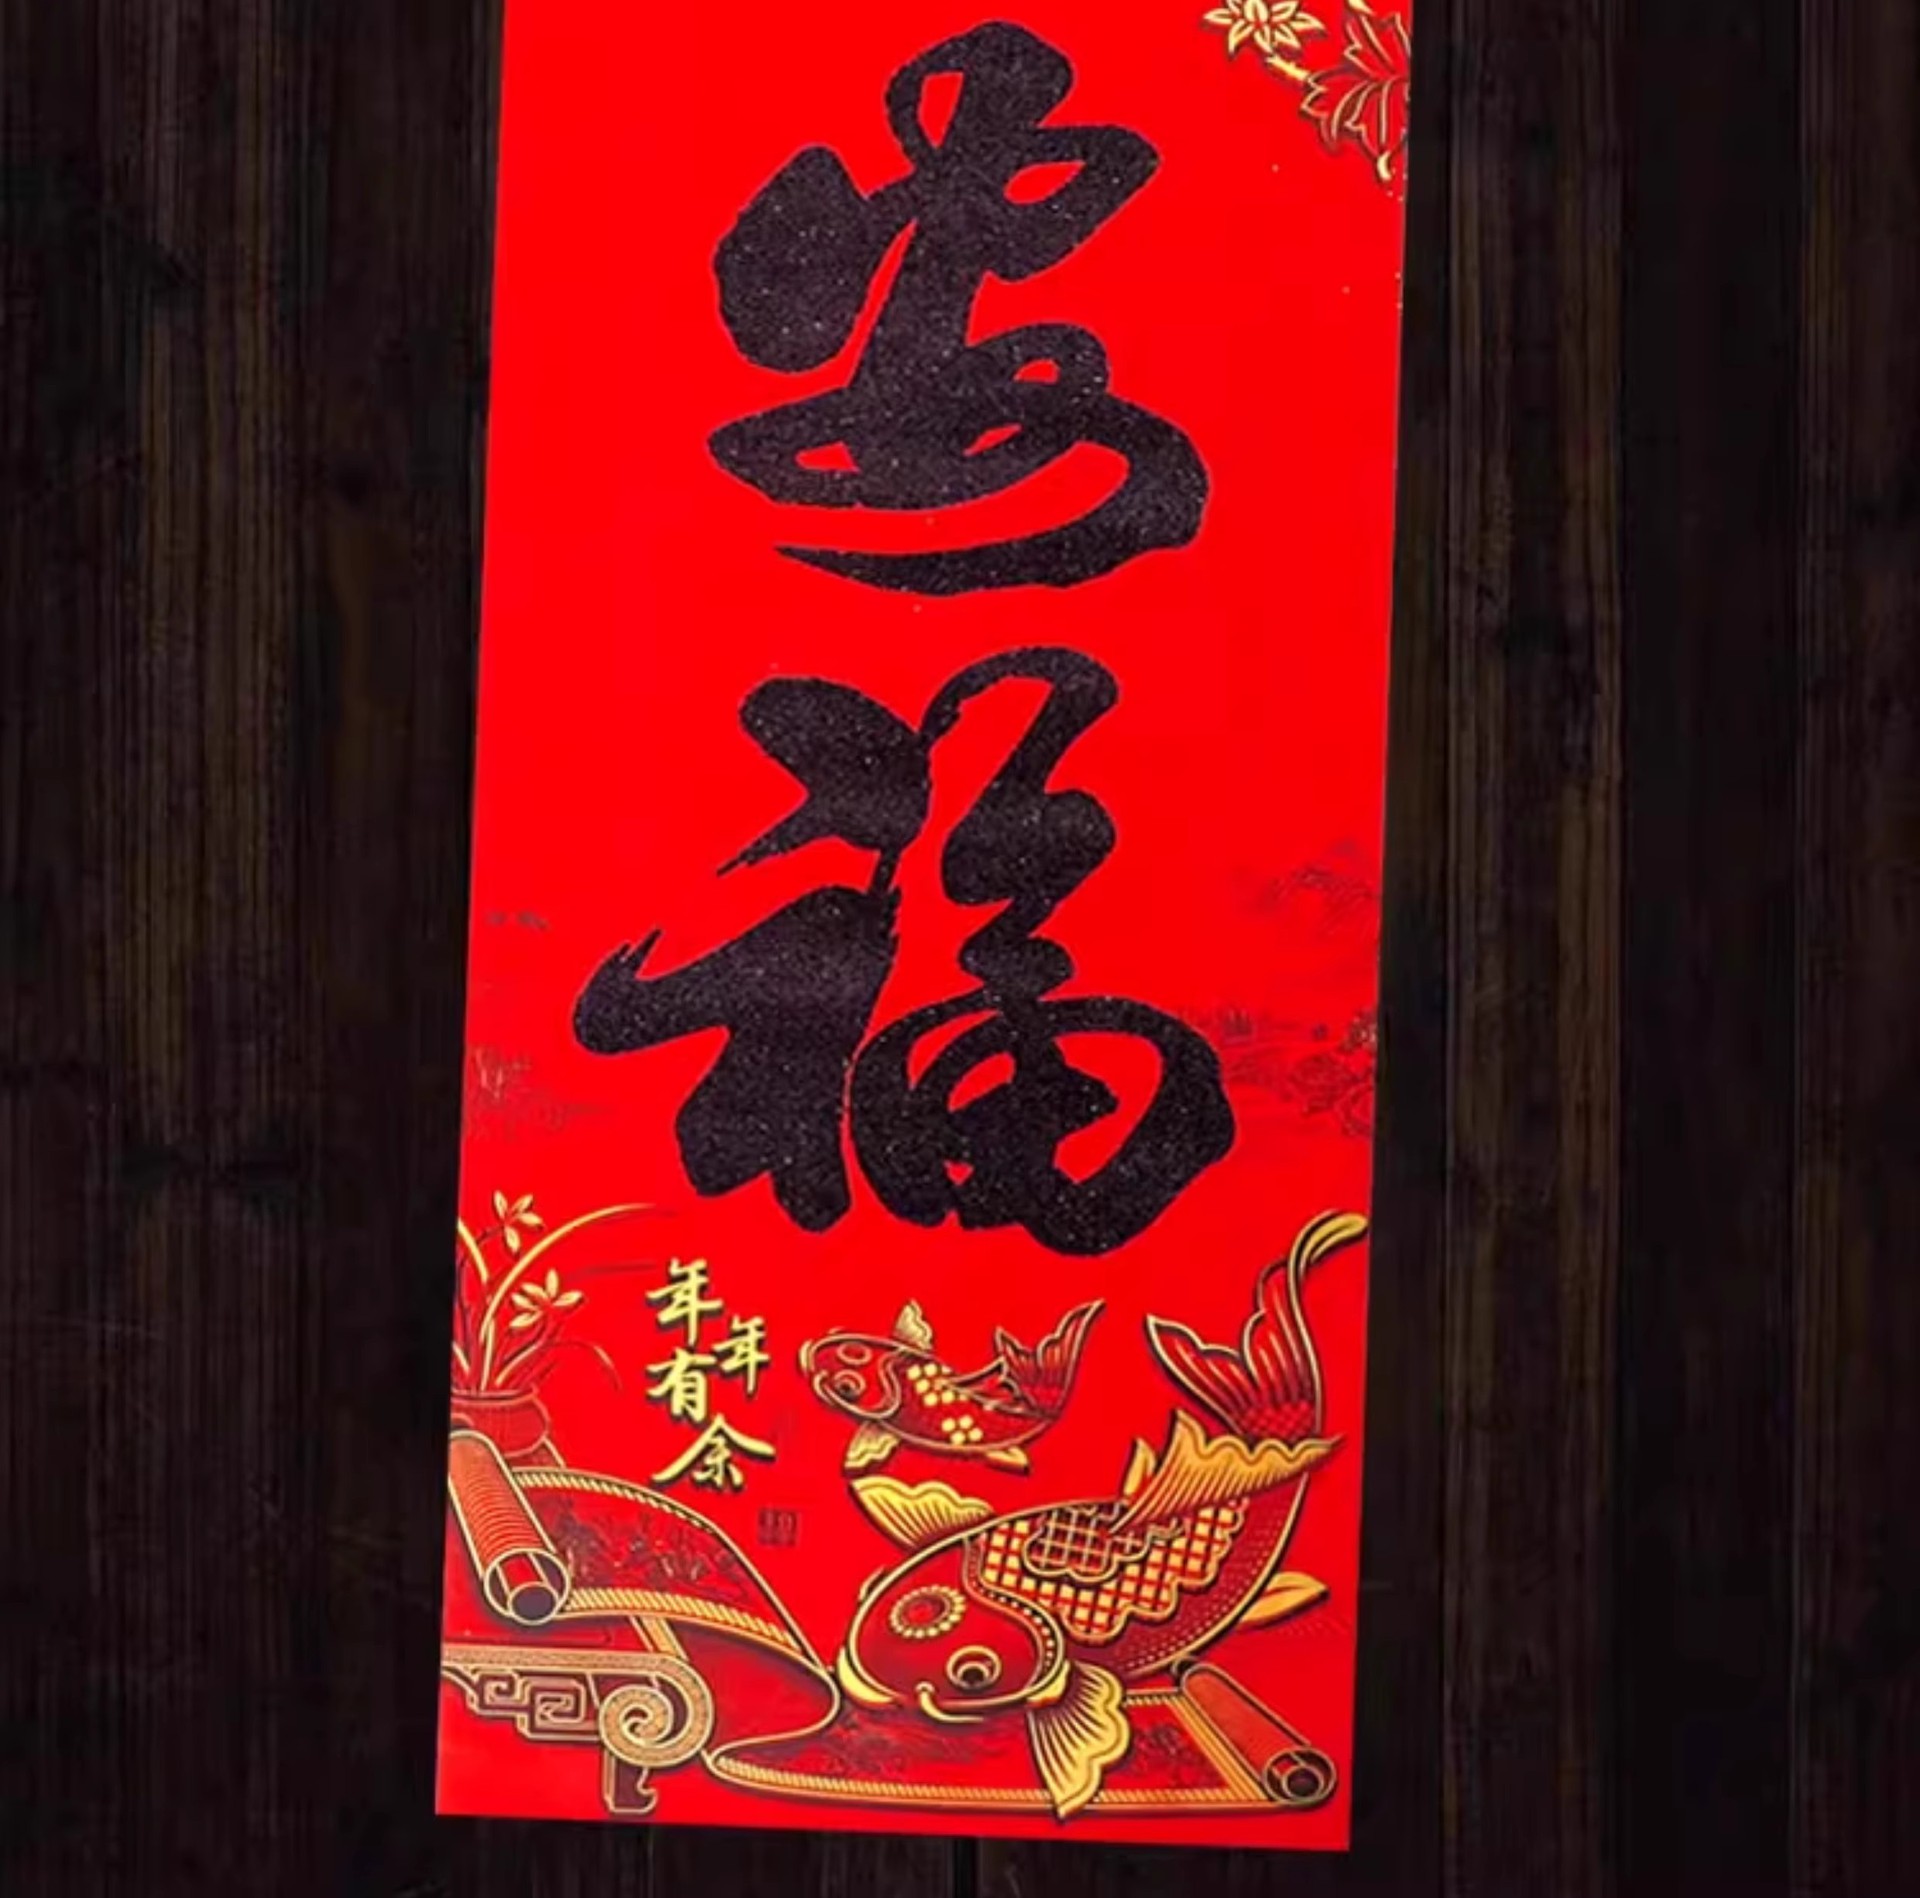 福
年年有余